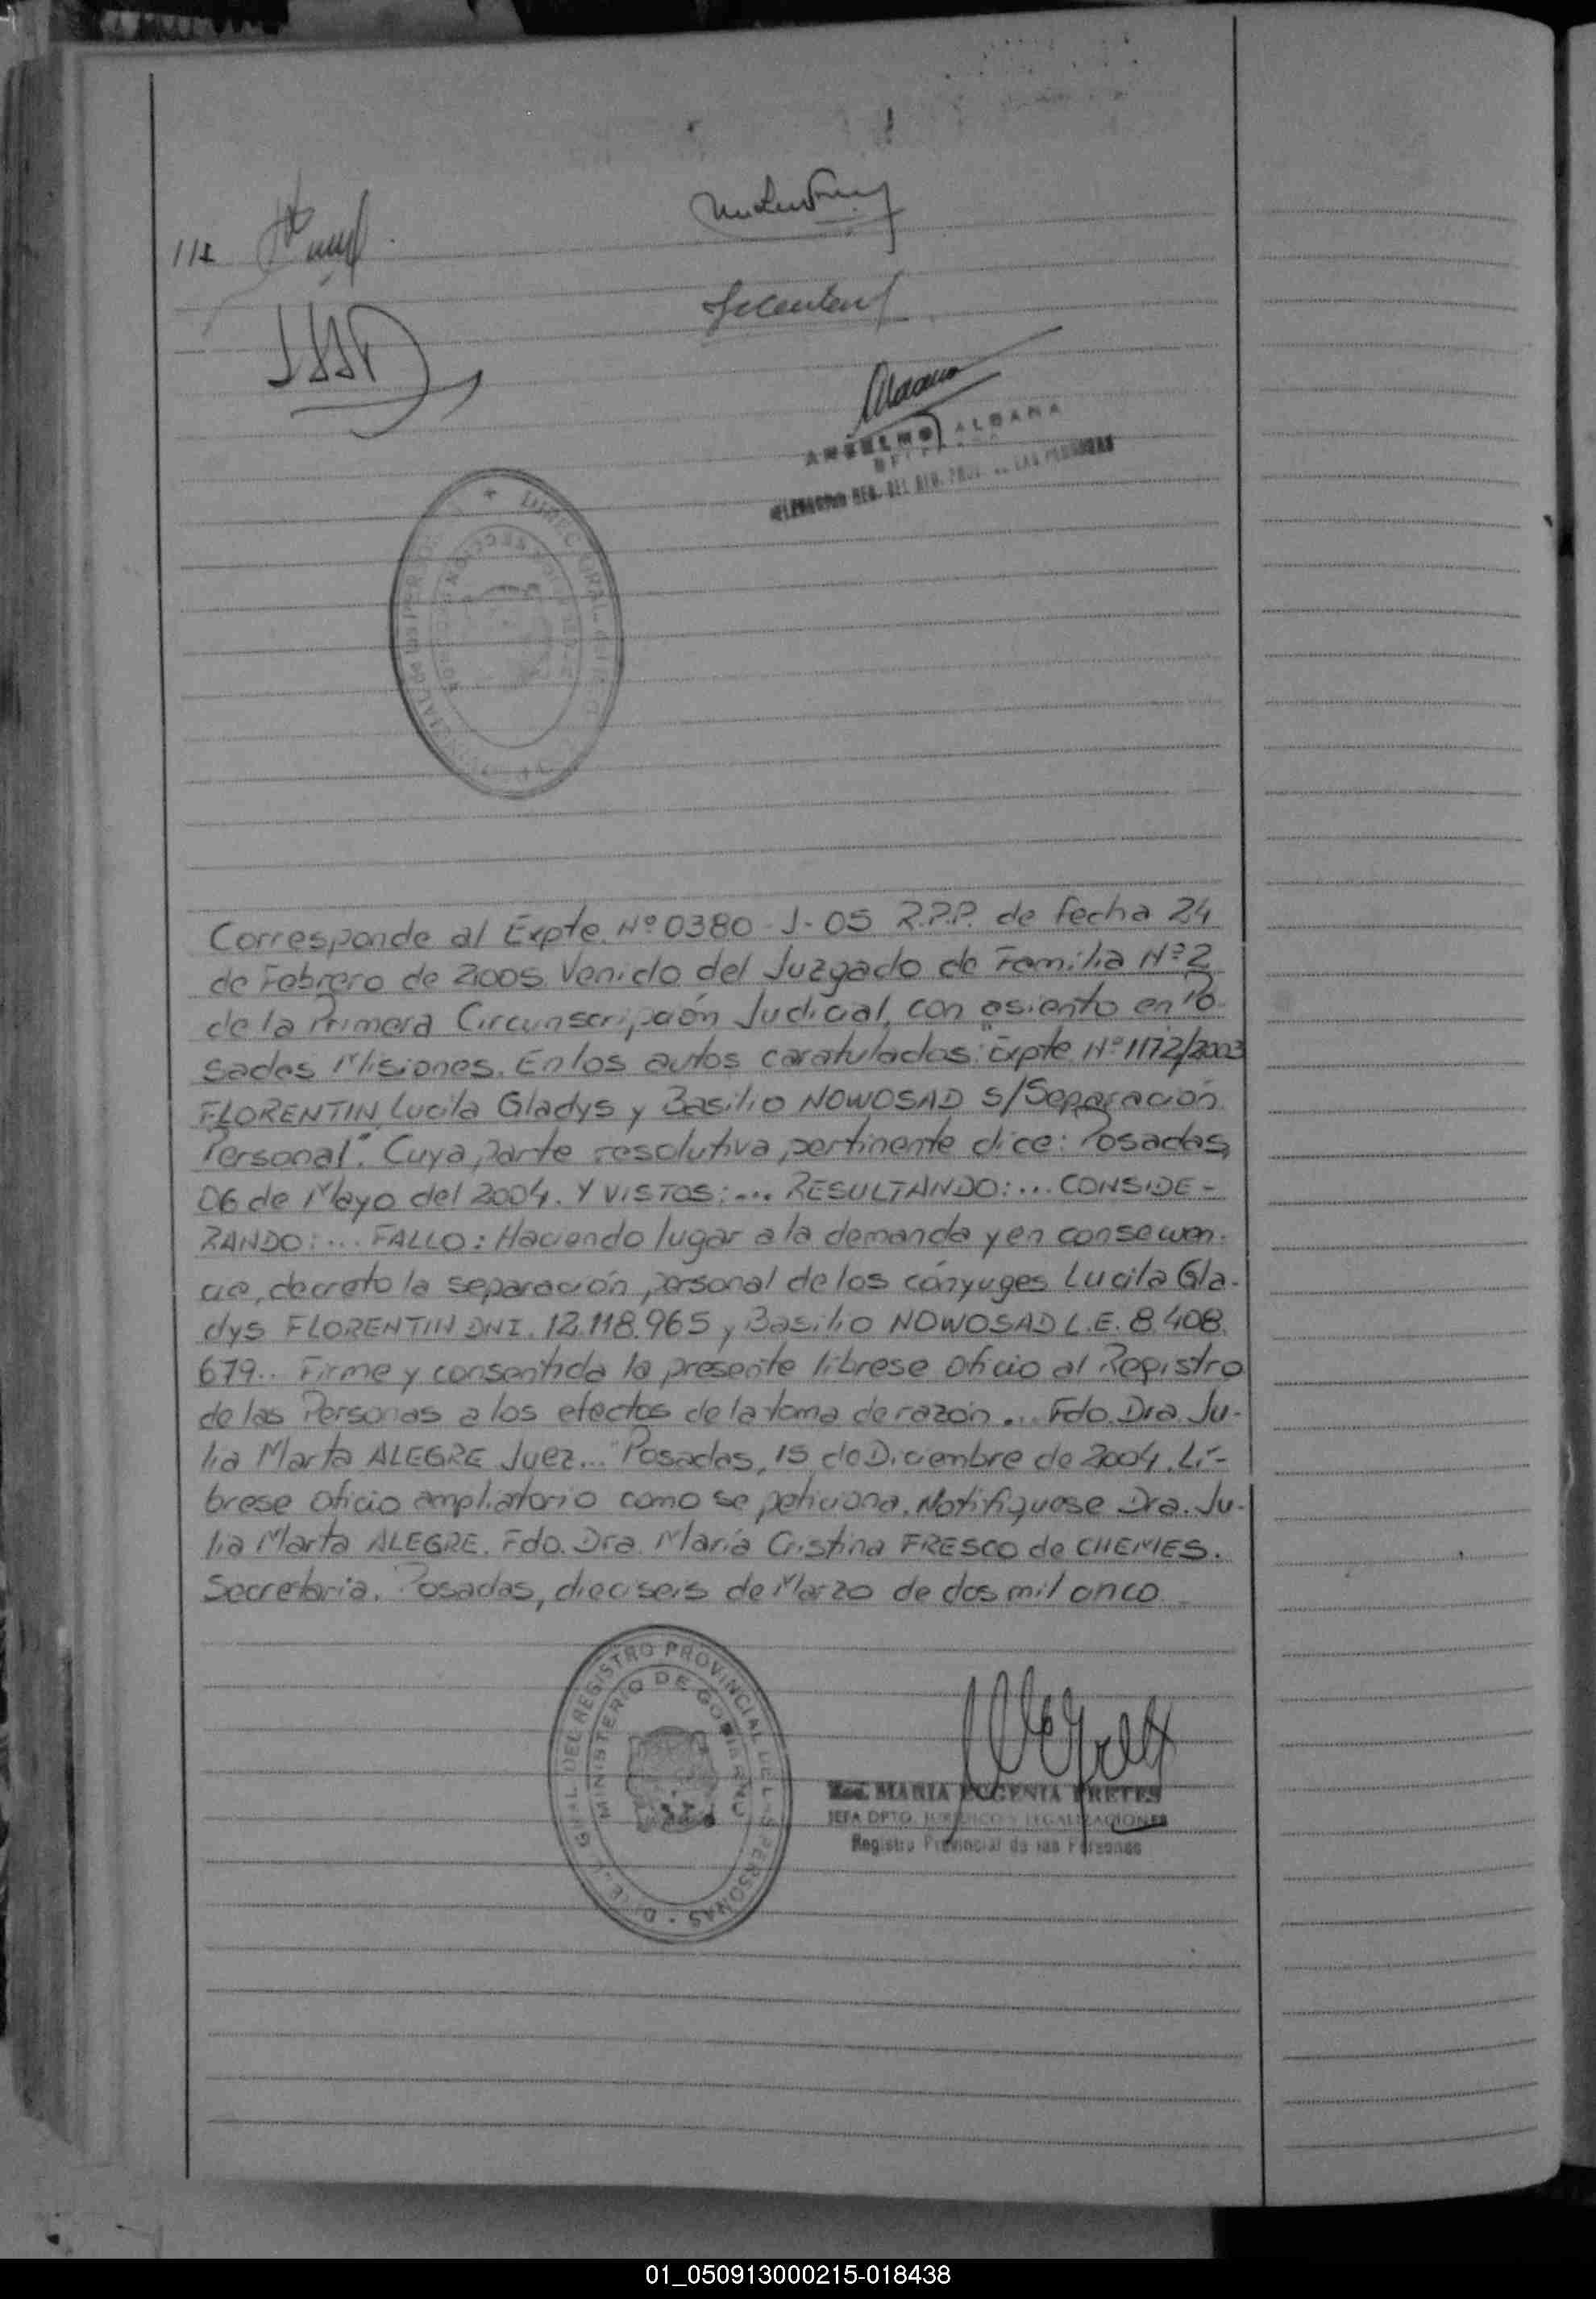 ANSELMO ALDANA
Corresponde al Expte. Nº 0380-J-05 R.P.P. de fecha 24
de Febrero de 2005. Venido del Juzgado de Familia Nº 2
de la Primera Circunscripción Judicial, con asiento en Po-
sadas Misiones. En los autos caratulados: "Expte. Nº 1172/2003
FLORENTIN, Lucila Gladys y Basilio NOWOSAD S/Separación
Personal". Cuya parte resolutiva pertinente dice: Posadas,
06 de Mayo del 2004. Y VISTOS:... RESULTANDO:... CONSIDE-
RANDO:... FALLO: Haciendo lugar a la demanda y en consecuen-
cia, decreto la separación personal de los cónyuges Lucila Gla-
dys FLORENTIN DNI. 12.118.965 y Basilio NOWOSAD L.E. 8.408.
679.. Firme y consentida la presente librese oficio al Registro
de las Personas a los efectos de la toma de razón... Fdo. Dra. Ju-
lia Marta ALEGRE Juez... "Posadas, 15 de Diciembre de 2004. Lí-
brese oficio ampliatorio como se peticiona. Notifiquese Dra. Ju-
lia Marta ALEGRE. Fdo. Dra. María Cristina FRESCO de CHEMES.
Secretaria. Posadas, dieciseis de Marzo de dos mil cinco.
GRAL. DEL REGISTRO PROVINCIAL DE LAS PERSONAS
MINISTERIO DE GOBIERNO
MARIA EUGENIA PRETES
JEFA DPTO. JURIDICO Y LEGALIZACIONES
Registro Provincial de las Personas
01_050913000215-018438